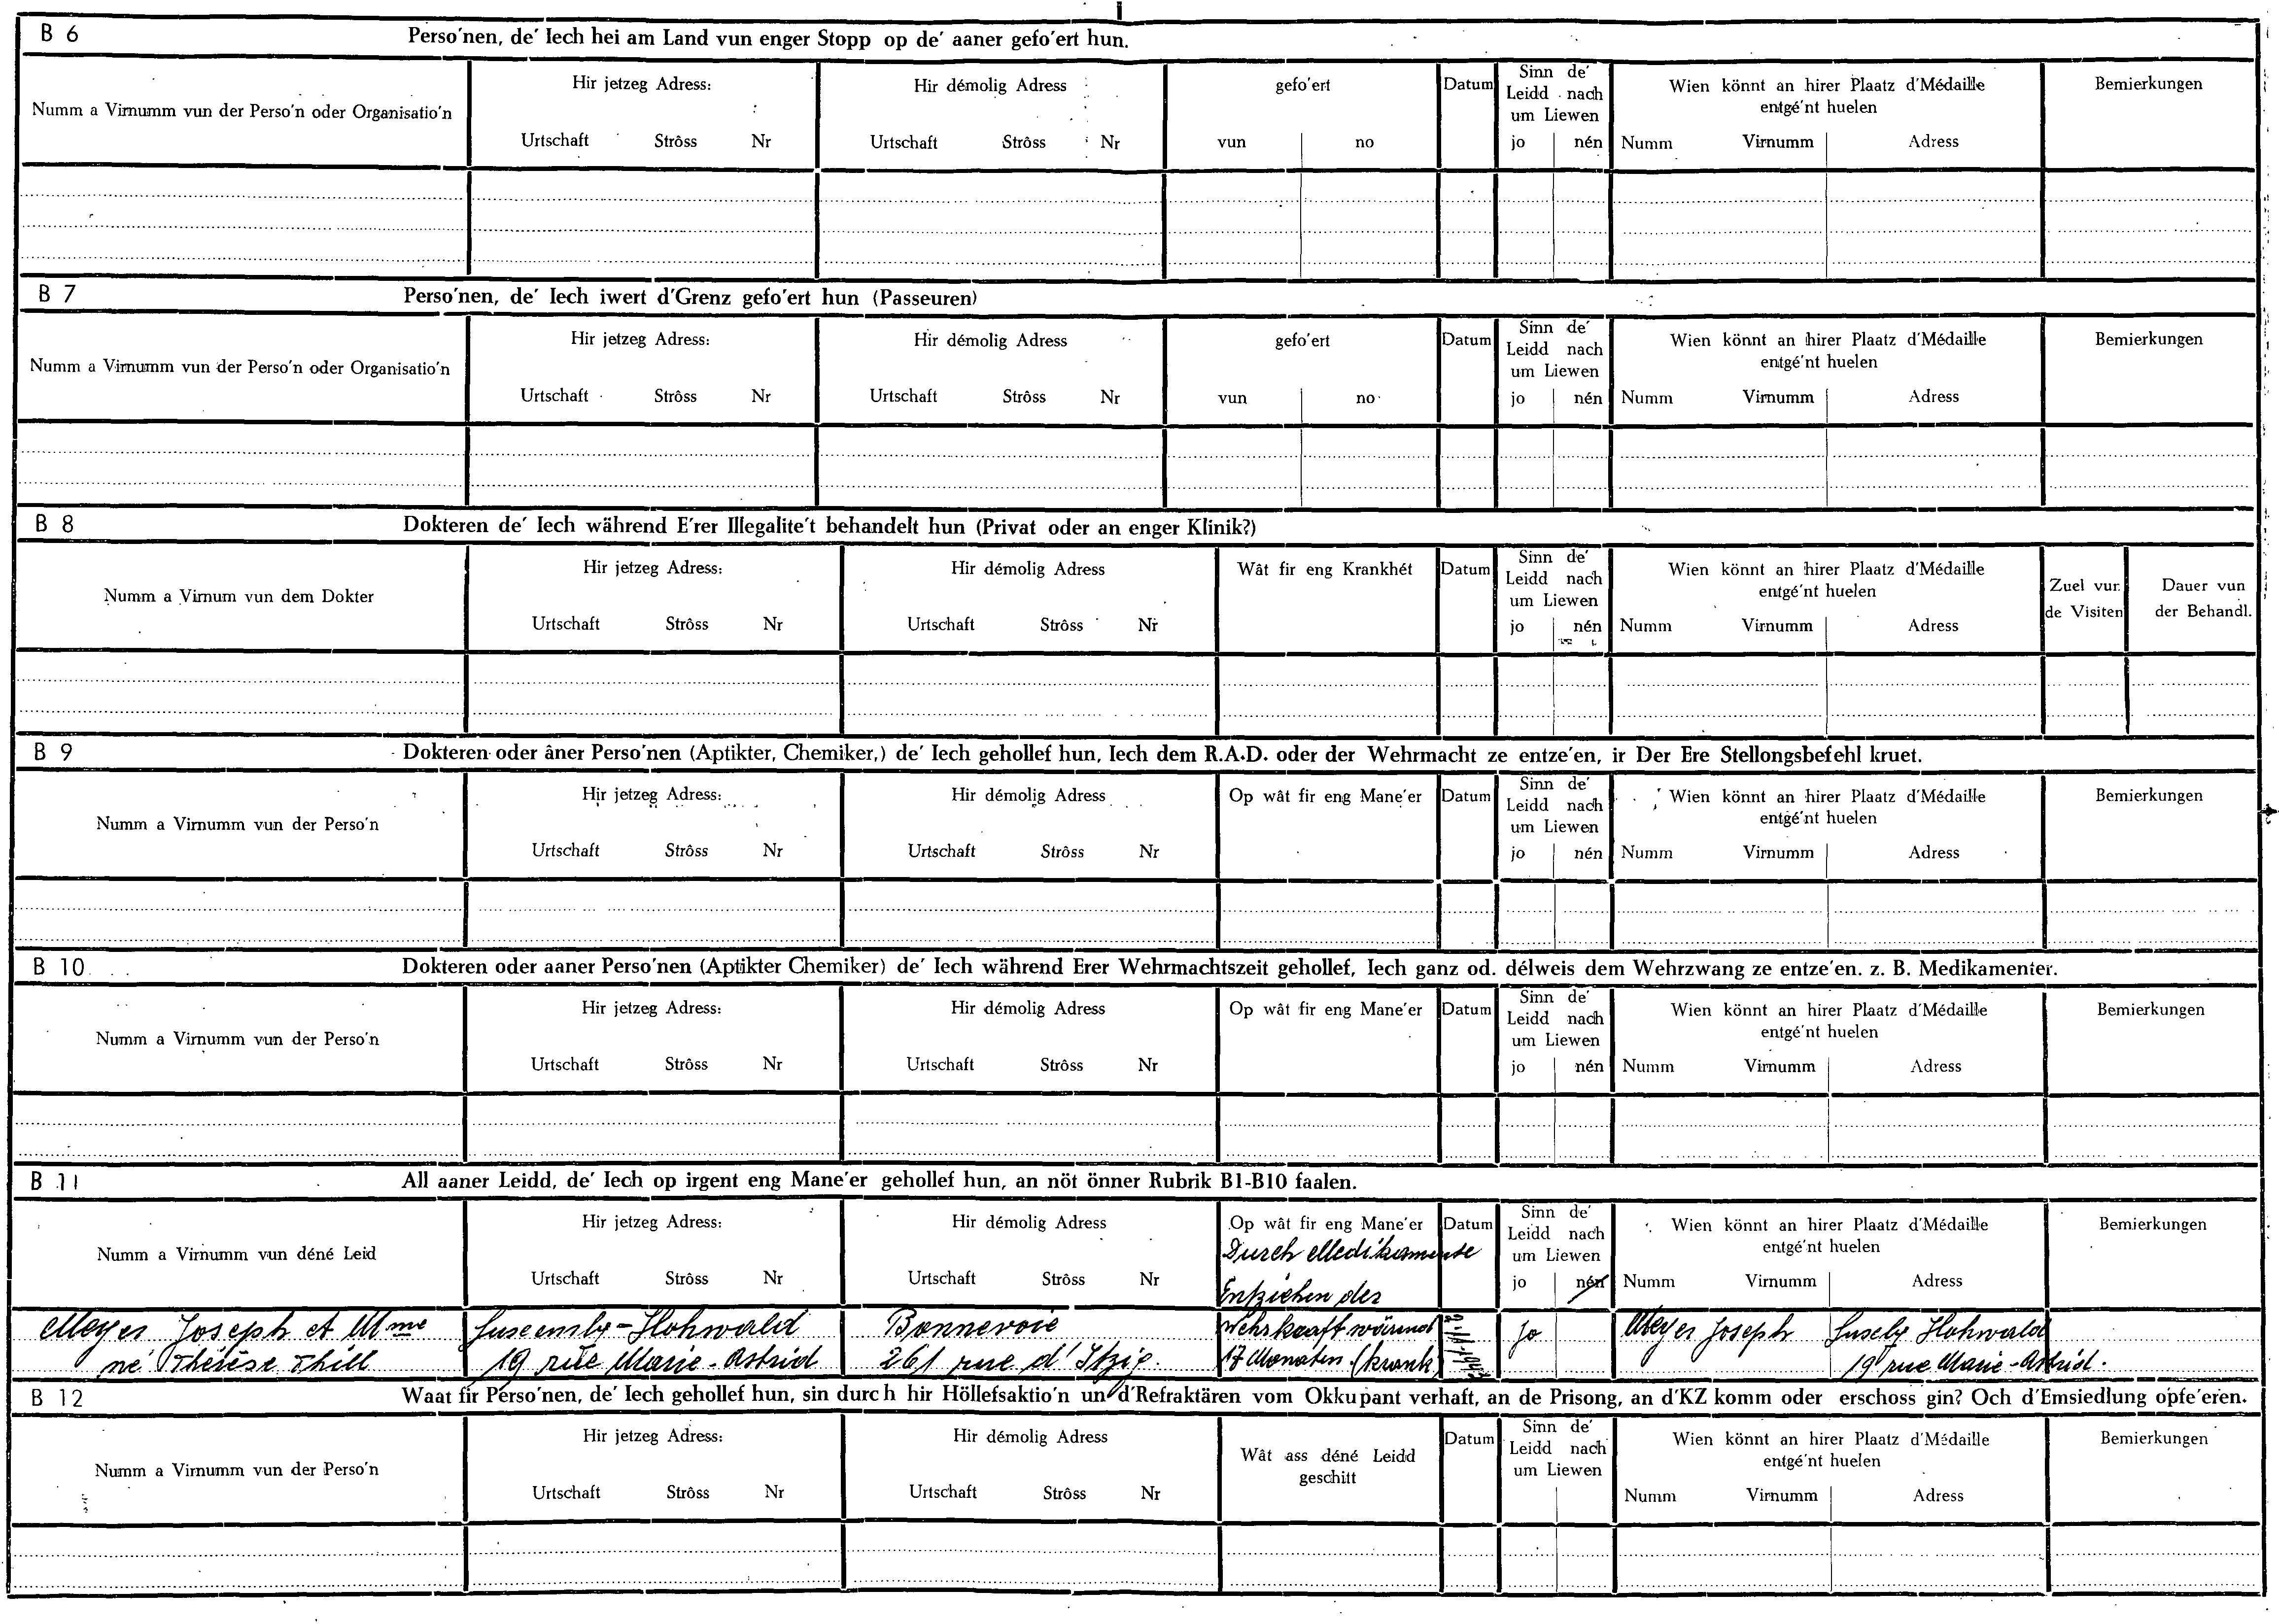 B 6 Perso'nen, de' Iech hei am Land vun enger Stopp op de' aaner gefo'ert hun.
Numm a Virnumm vun der Perso'n oder Organisatio'n
Hir jetzeg Adress:
Urtschaft Strôss Nr
Hir démolig Adress
Urtschaft Strôss Nr
gefo'ert
vun no
Datum
Sinn de'
Leidd nach
um Liewen
jo nén
Wien könnt an hirer Plaatz d'Médaille
entgé'nt huelen
Numm Virnumm Adress
Bemierkungen
B 7 Perso'nen, de' Iech iwert d'Grenz gefo'ert hun (Passeuren)
Numm a Virnumm vun der Perso'n oder Organisatio'n
Hir jetzeg Adress:
Urtschaft Strôss Nr
Hir démolig Adress
Urtschaft Strôss Nr
gefo'ert
vun no
Datum
Sinn de'
Leidd nach
um Liewen
jo nén
Wien könnt an hirer Plaatz d'Médaille
entgé'nt huelen
Numm Virnumm Adress
Bemierkungen
B 8 Dokteren de' Iech während E'rer Illegalite't behandelt hun (Privat oder an enger Klinik?)
Numm a Virnum vun dem Dokter
Hir jetzeg Adress:
Urtschaft Strôss Nr
Hir démolig Adress
Urtschaft Strôss Nr
Wât fir eng Krankhét
Datum
Sinn de'
Leidd nach
um Liewen
jo nén
Wien könnt an hirer Plaatz d'Médaille
entgé'nt huelen
Numm Virnumm Adress
Zuel vun
de Visiten
Dauer vun
der Behandl.
B 9 Dokteren oder âner Perso'nen (Aptikter, Chemiker,) de' Iech gehollef hun, Iech dem R.A.D. oder der Wehrmacht ze entze'en, ir Der Ere Stellongsbefehl kruet.
Numm a Virnumm vun der Perso'n
Hir jetzeg Adress:
Urtschaft Strôss Nr
Hir démolig Adress
Urtschaft Strôss Nr
Op wât fir eng Mane'er
Datum
Sinn de'
Leidd nach
um Liewen
jo nén
Wien könnt an hirer Plaatz d'Médaille
entgé'nt huelen
Numm Virnumm Adress
Bemierkungen
B 10 Dokteren oder aaner Perso'nen (Aptikter Chemiker) de' Iech während Erer Wehrmachtszeit gehollef, Iech ganz od. délweis dem Wehrzwang ze entze'en. z. B. Medikamenter.
Numm a Virnumm vun der Perso'n
Hir jetzeg Adress:
Urtschaft Strôss Nr
Hir démolig Adress
Urtschaft Strôss Nr
Op wât fir eng Mane'er
Datum
Sinn de'
Leidd nach
um Liewen
jo nén
Wien könnt an hirer Plaatz d'Médaille
entgé'nt huelen
Numm Virnumm Adress
Bemierkungen
B 11 All aaner Leidd, de' Iech op irgent eng Mane'er gehollef hun, an nöt önner Rubrik B1-B10 faalen.
Numm a Virnumm vun déné Leid
Hir jetzeg Adress:
Urtschaft Strôss Nr
Hir démolig Adress
Urtschaft Strôss Nr
Op wât fir eng Mane'er
Durch Medikamente
Entziehen der
Wehrkraft wärend
17 Monaten (krank)
Datum
Sinn de'
Leidd nach
um Liewen
jo nén
Wien könnt an hirer Plaatz d'Médaille
entgé'nt huelen
Numm Virnumm Adress
Bemierkungen
Meyer Joseph et Mme - Hohwald Bonnevoie Jo Meyer Joseph Hohwald
né Thérèse Thill 19 rue Marie-Astrid 261 rue d'Itzig. 19 rue Marie-Astrid.
B 12 Waat fir Perso'nen, de' Iech gehollef hun, sin durch hir Höllefsaktio'n un d'Refraktären vom Okkupant verhaft, an de Prisong, an d'KZ komm oder erschoss gin? Och d'Emsiedlung opfe'eren.
Numm a Virnumm vun der Perso'n
Hir jetzeg Adress:
Urtschaft Strôss Nr
Hir démolig Adress
Urtschaft Strôss Nr
Wât ass déné Leidd
geschitt
Datum
Sinn de'
Leidd nach
um Liewen
Wien könnt an hirer Plaatz d'Médaille
entgé'nt huelen
Numm Virnumm Adress
Bemierkungen